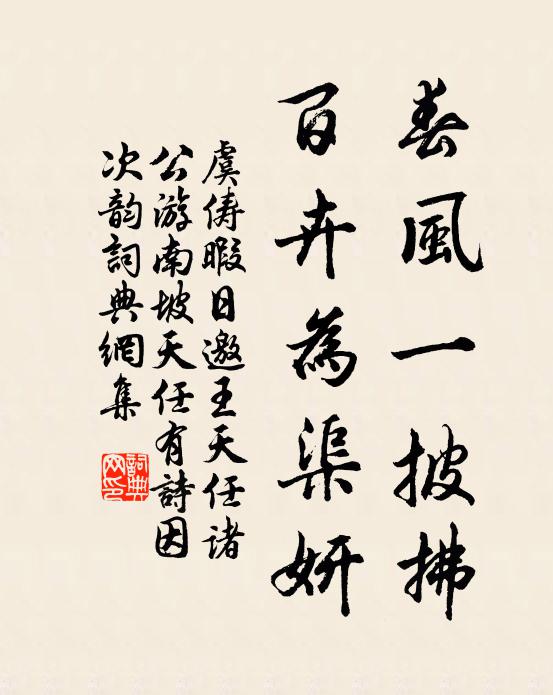 春風一披拂
百卉為渠妍
虞儔暇日邀王天任諸
公游南坡天任有詩因
次韵詞典網集
詞典网印